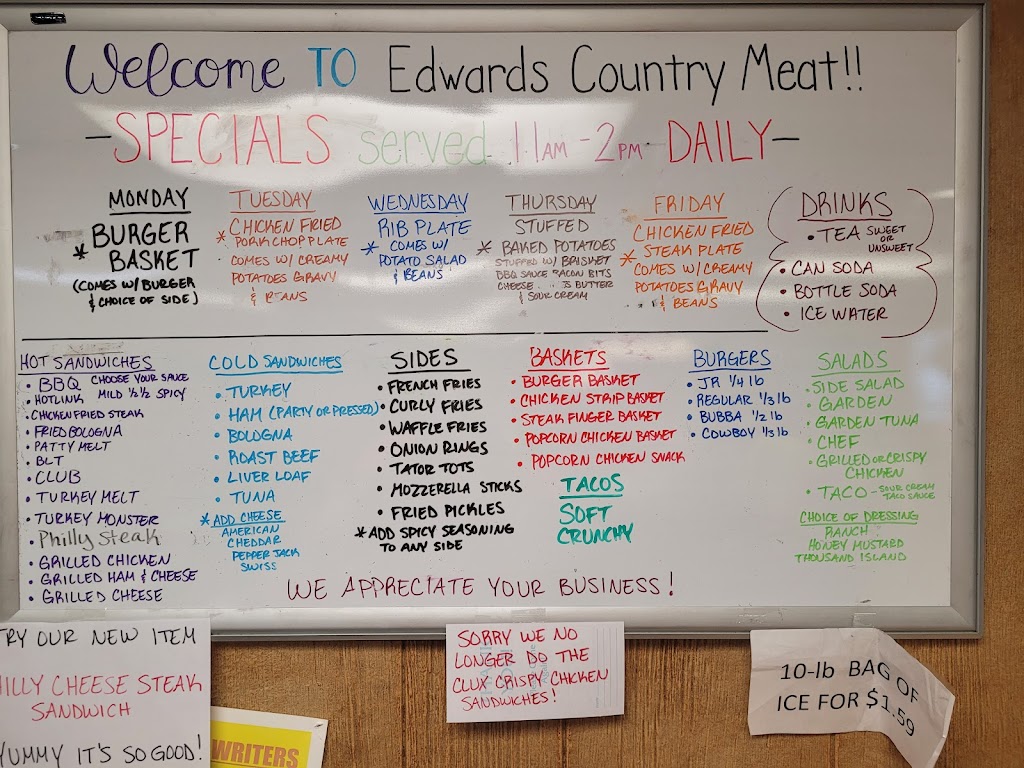 Welcome TO Edwards Country Meat!!
-SPECIALS served 11AM-2PM DAILY-
MONDAY
* BURGER
BASKET
(COMES W/ BURGER
& CHOICE OF SIDE)
TUESDAY
* CHICKEN FRIED
PORK CHOP PLATE
COMES W/ CREAMY
POTATOES GRAVY
&
WEDNESDAY
RIB PLATE
* COMES W/
POTATO SALAD
& BEANS
THURSDAY
STUFFED
* BAKED POTATOES
STUFFED W/ BRISKET
BBQ SAUCE BACON BITS
CHEESE BUTTER
& SOUR CREAM
FRIDAY
CHICKEN FRIED
* STEAK PLATE
COMES W/ CREAMY
POTATOES GRAVY
& BEANS
DRINKS
• TEA SWEET
OR
UNSWEET
• CAN SODA
• BOTTLE SODA
• ICE WATER
HOT SANDWICHES
• BBQ CHOOSE YOUR SAUCE
• HOTLINK MILD ½ ½ SPICY
• CHICKEN FRIED STEAK
• FRIED BOLOGNA
• PATTY MELT
• BLT
• CLUB
• TURKEY MELT
• TURKEY MONSTER
• Philly Steak
• GRILLED CHICKEN
• GRILLED HAM & CHEESE
• GRILLED CHEESE
COLD SANDWICHES
• TURKEY
• HAM (PARTY OR PRESSED)
• BOLOGNA
• ROAST BEEF
• LIVER LOAF
• TUNA
* ADD CHEESE
AMERICAN
CHEDDAR
PEPPER JACK
SWISS
SIDES
• FRENCH FRIES
• CURLY FRIES
• WAFFLE FRIES
• ONION RINGS
• TATOR TOTS
• MOZZERELLA STICKS
• FRIED PICKLES
* ADD SPICY SEASONING
TO ANY SIDE
BASKETS
• BURGER BASKET
• CHICKEN STRIP BASKET
• STEAK FINGER BASKET
• POPCORN CHICKEN BASKET
• POPCORN CHICKEN SNACK
TACOS
SOFT
CRUNCHY
BURGERS
• JR 1/4 lb
• REGULAR 1/3 lb
• BUBBA 1/2 lb
• COWBOY 1/3 lb
SALADS
• SIDE SALAD
• GARDEN
• GARDEN TUNA
• CHEF
• GRILLED OR CRISPY
CHICKEN
• TACO - SOUR CREAM
TACO SAUCE
CHOICE OF DRESSING
RANCH
HONEY MUSTARD
THOUSAND ISLAND
WE APPRECIATE YOUR BUSINESS!
TRY OUR NEW ITEM
HILLY CHEESE STEAK
SANDWICH
YUMMY IT'S SO GOOD!
WRITERS
SORRY WE NO
LONGER DO THE
CLUX CRISPY CHICKEN
SANDWICHES!
10-lb BAG OF
ICE FOR $1.59